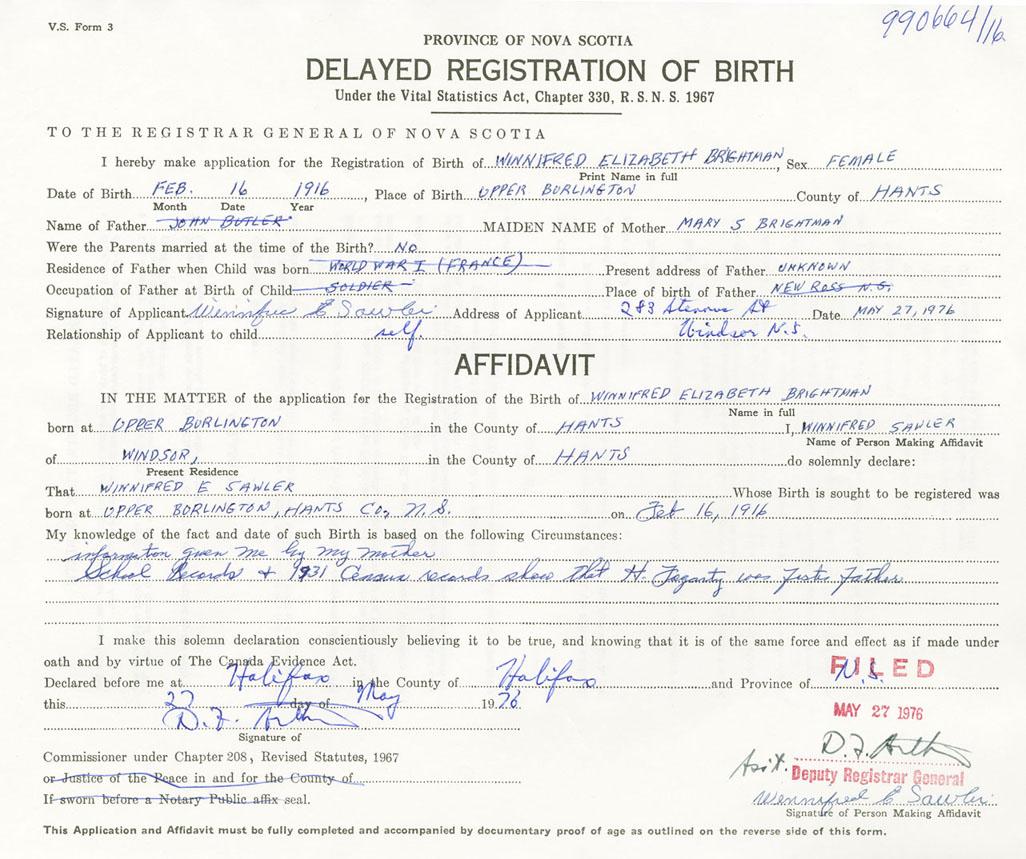 V.S. Form 3
990664/16
PROVINCE OF NOVA SCOTIA
DELAYED REGISTRATION OF BIRTH
Under the Vital Statistics Act, Chapter 330, R.S.N.S. 1967
TO THE REGISTRAR GENERAL OF NOVA SCOTIA
I hereby make application for the Registration of Birth of WINNIFRED ELIZABETH BRIGHTMAN, Sex FEMALE
Print Name in full
Date of Birth FEB. 16 1916, Place of Birth UPPER BURLINGTON County of HANTS
Month Date Year
Name of Father JOHN BUTLER MAIDEN NAME of Mother MARY S BRIGHTMAN
Were the Parents married at the time of the Birth? NO
Residence of Father when Child was born WORLD WAR I (FRANCE) Present address of Father UNKNOWN
Occupation of Father at Birth of Child SOLDIER Place of birth of Father NEW ROSS N.S.
Signature of Applicant Winnifred E Sawler Address of Applicant 283 St Date MAY 27, 1976
Relationship of Applicant to child self. Windsor N.S.
AFFIDAVIT
IN THE MATTER of the application for the Registration of the Birth of WINNIFRED ELIZABETH BRIGHTMAN
Name in full
born at UPPER BURLINGTON in the County of HANTS I, WINNIFRED SAWLER
Name of Person Making Affidavit
of WINDSOR, in the County of HANTS do solemnly declare:
Present Residence
That WINNIFRED E SAWLER Whose Birth is sought to be registered was
born at UPPER BURLINGTON, HANTS CO, N.S. on Feb 16, 1916
My knowledge of the fact and date of such Birth is based on the following Circumstances:
information given me by my mother
School Records & 1931 Census records show that H. Fogarty was Foster Father
I make this solemn declaration conscientiously believing it to be true, and knowing that it is of the same force and effect as if made under
oath and by virtue of The Canada Evidence Act.
Declared before me at Halifax in the County of Halifax and Province of N.S.
FILED
this 27 day of May 1976
MAY 27 1976
D.F.
Signature of
Commissioner under Chapter 208, Revised Statutes, 1967
D.F.
or Justice of the Peace in and for the County of
Asst. Deputy Registrar General
If sworn before a Notary Public affix seal.
Winnifred E Sawler
Signature of Person Making Affidavit
This Application and Affidavit must be fully completed and accompanied by documentary proof of age as outlined on the reverse side of this form.